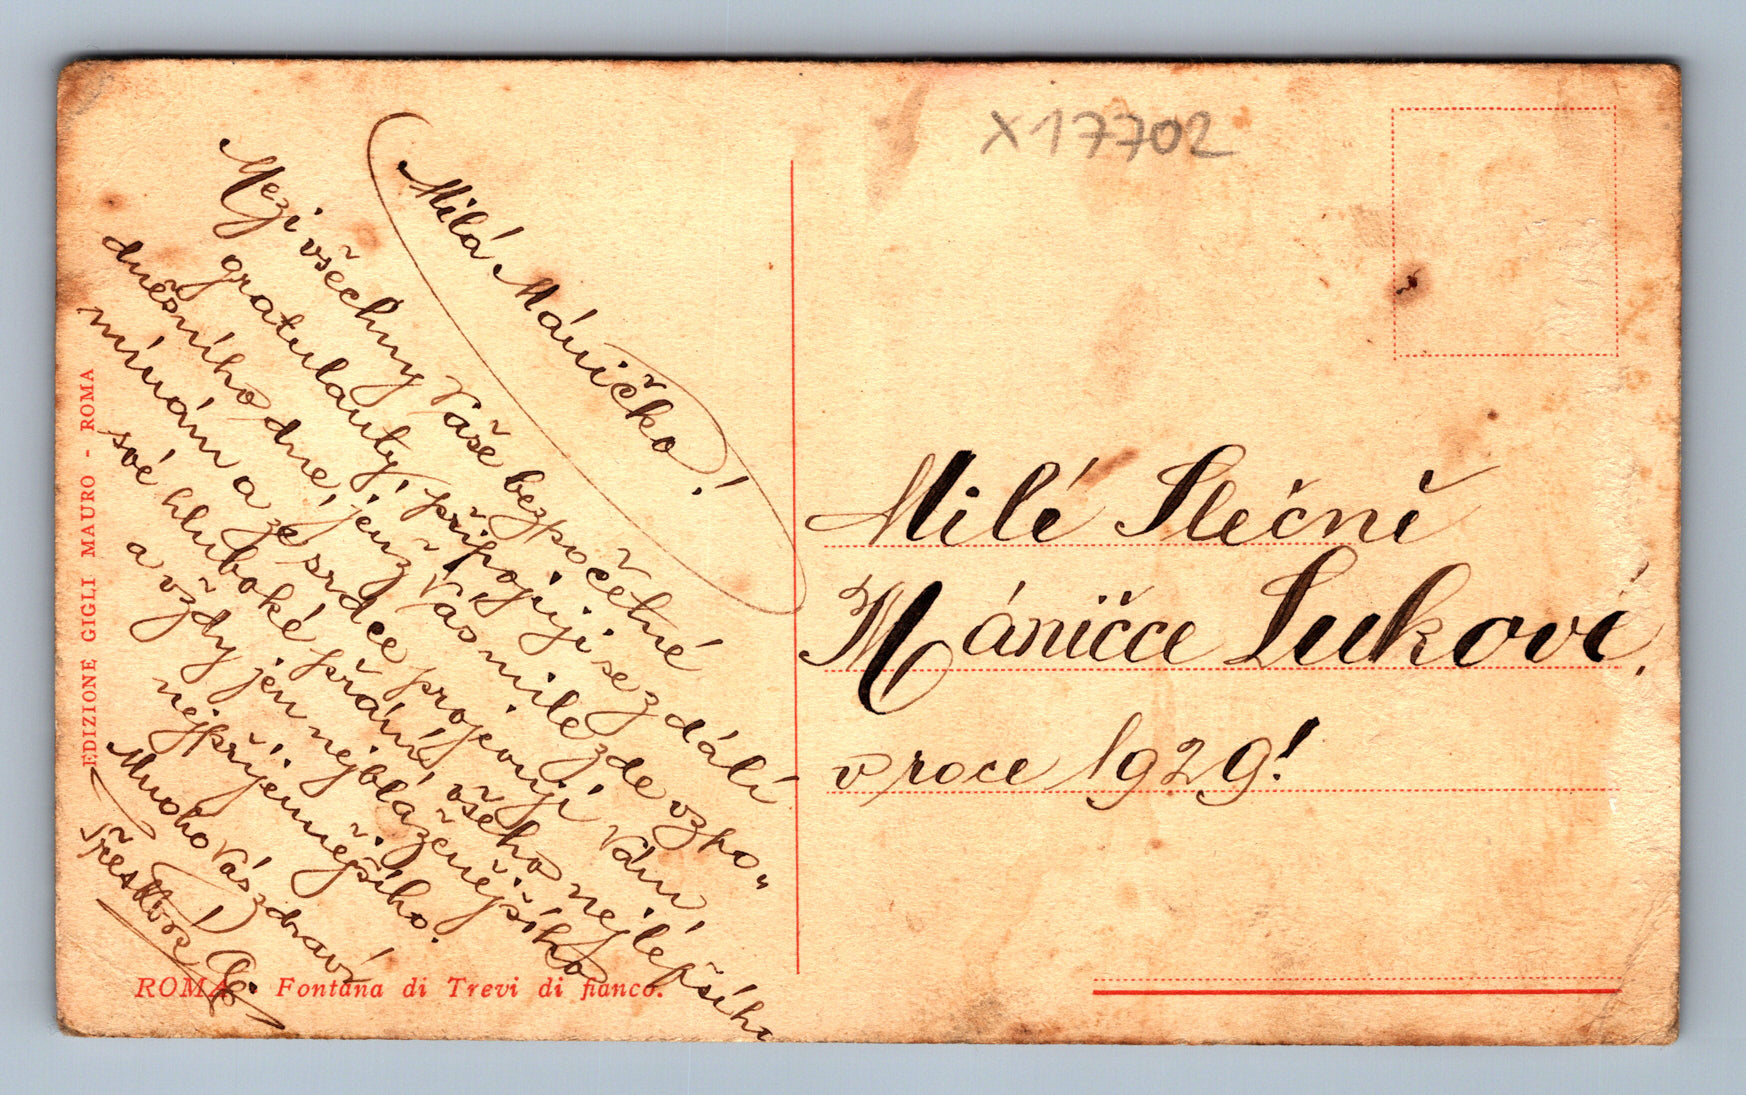 Milá Máničko!
Mezi všechny Vaše bezpočetné
gratulanty, připojuji se z dálí
dnešního dne, jenž Vás mile zde vzpo„
mínám a ze srdce projevuji Vám
své hluboké přání všeho nejlepšího
a vždy jen nejblaženějšího
nejpříjemnějšího.
Mnoho Vás zdraví
X17702
Milé Slečně
Máničce Lukové,
v roce 1929!
EDIZIONE GIGLI MAURO - ROMA
ROMA - Fontana di Trevi di fianco.